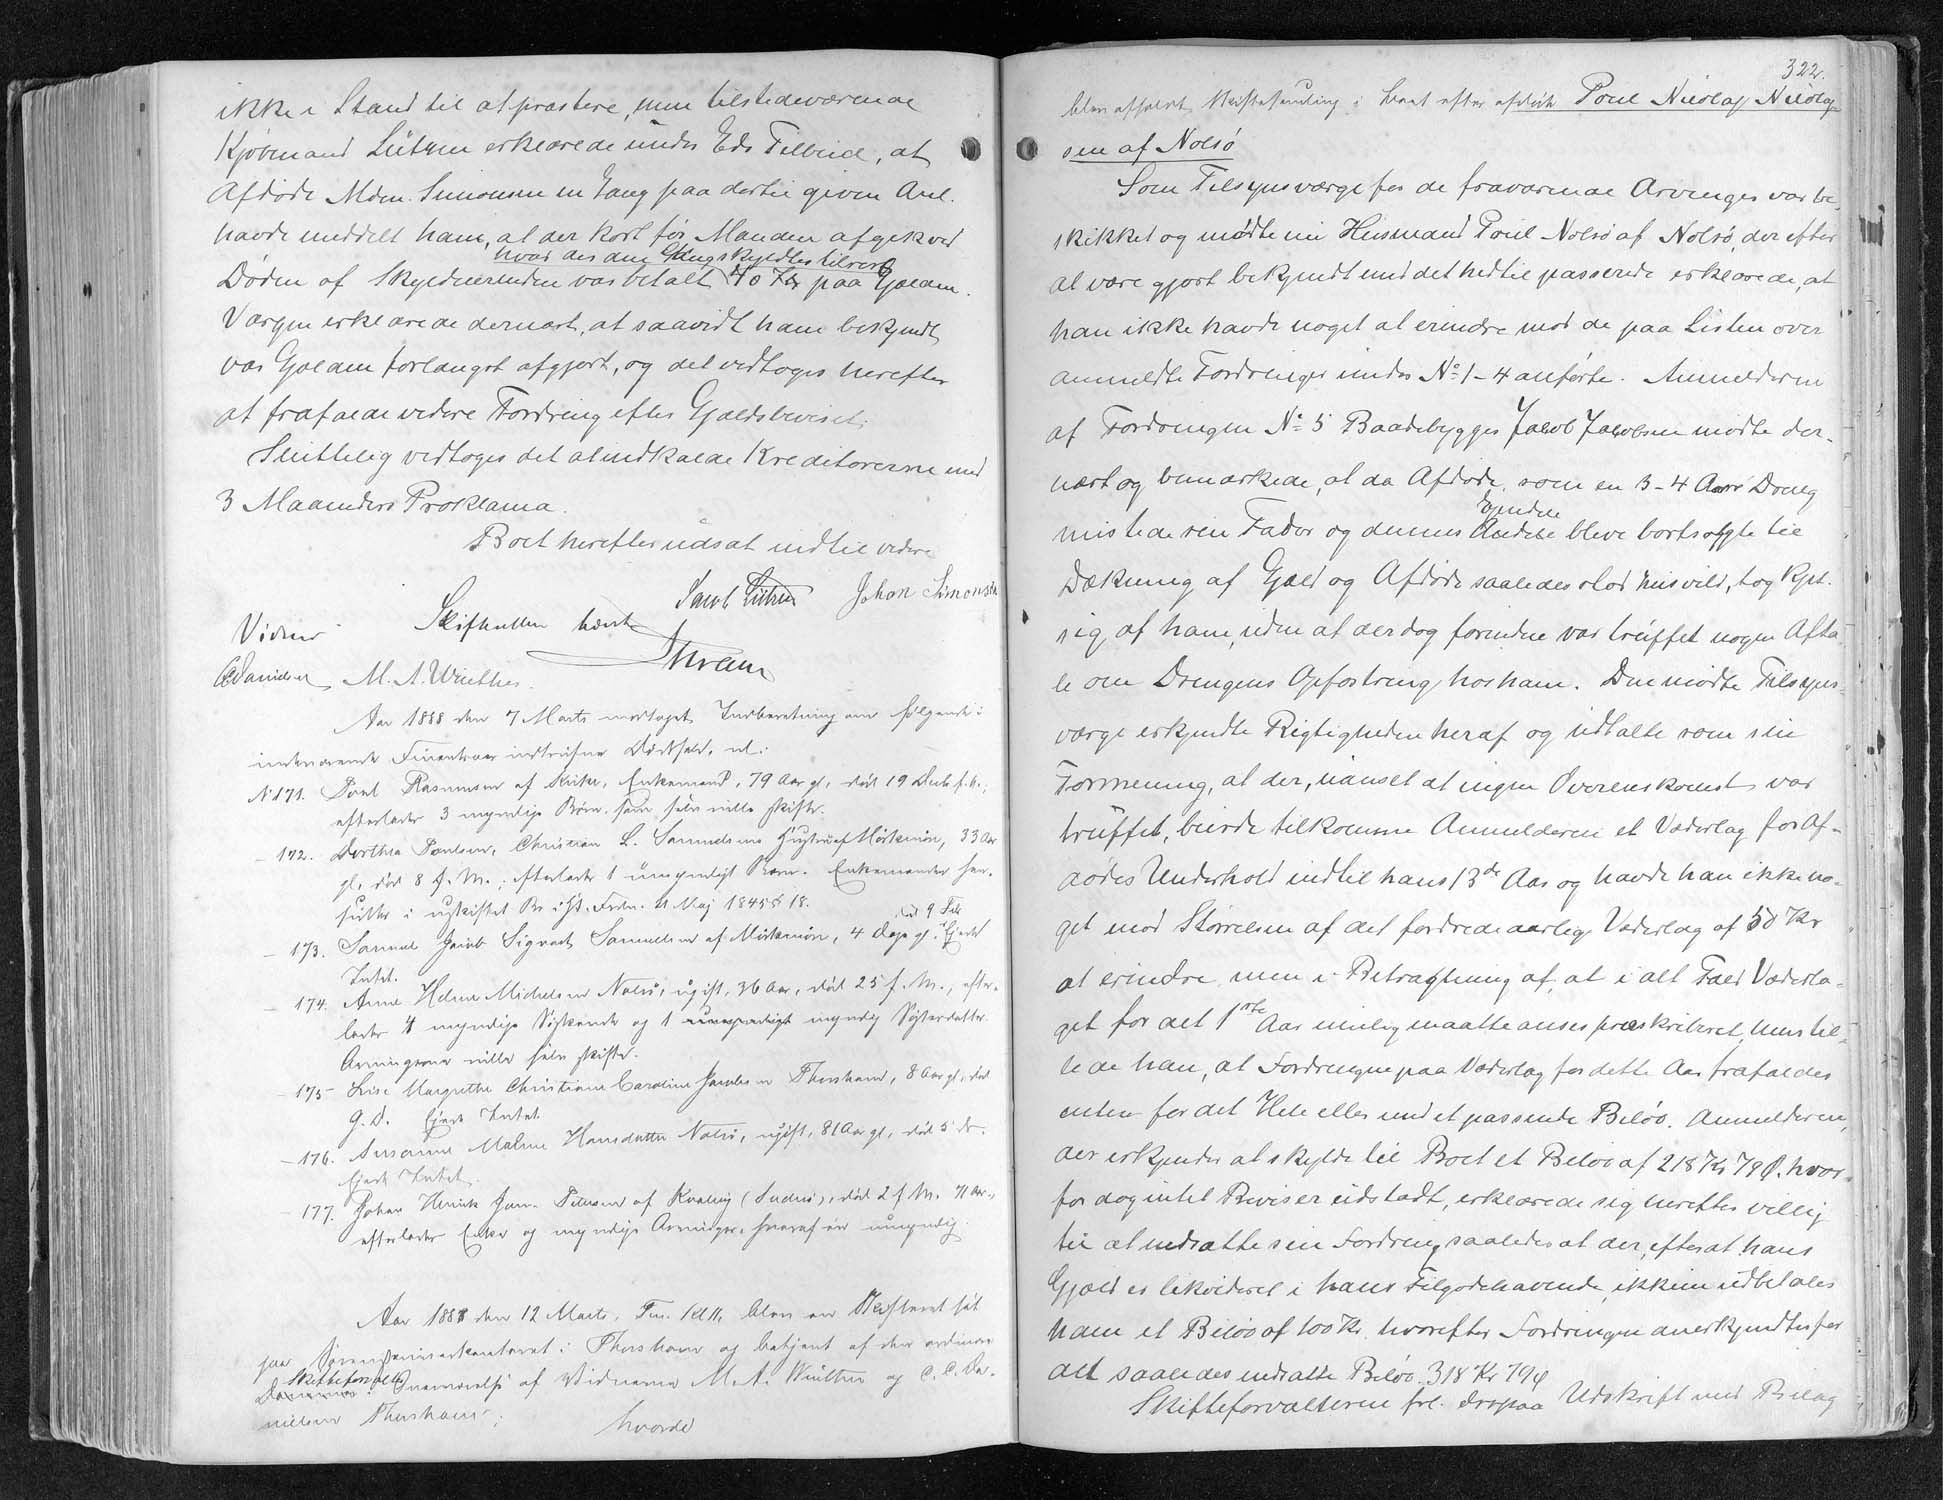 ikke i Stand til at præstere, men tilstedeværende
Kjøbmand Lützen erklærede under Eds Tilbud, at
Afdøde Mdm. Simonsen en Gang paa dertil given Anl.
havde meddelt ham, at der kort før Manden afgik ved
hvad der den Gang skyldtes tilrest
Døden af Skyldnerinden var betalt 40 Kr paa Gjælden.
Værgen erklærede dernæst, at saavidt ham bekjendt
var Gjælden forlængst afgjort, og det vedtoges herefter
at frafalde videre Fordring efter Gjældsbeviset.
Sluttelig vedtoges det at indkalde Kreditorerne med
3 Maaneders Proklama.
Boet herefter udsat indtil videre
Jacob Lützen Johan Simonsen
Skifteretten hævet
Vidner
CDanielsen M. A. Winther.
Aar 1888 den 7 Marts modtaget Indberetning om følgende i
indeværende Finantsaar indtrufne Dødsfald, nl.:
No 171. Poul Rasmussen af , Enkemand, 79 Aar gl., død 19 Decb. f. A.;
efterlader 3 myndige Børn, som selv ville skifte.
- 172. Dorthea Poulsen, Christian L. Samuelsens Hustru af Mörkenöre, 33 Aar
gl., död 8 f. M.; efterlader 1 umyndigt Barn. Enkemanden hen-
sidder i uskiftet Bo iflg. Frdn. 21 Maj 1845 § 18.
- 173. Samuel Jacob Sigvard Samuelsen af Mörkenöre, 4 Dage gl., död 9 Feb. Ejede
Intet.
- 174. Anne Helene Michelsen Nolsö, ugift, 36 Aar, död 25 f. M., efter-
lader 4 myndige Söskende og 1 umyndigt myndig Söster datter.
Arvingerne ville selv skifte.
- 175 Lise Margrethe Christiane Caroline Jacobsen Thorshavn, 8 Aar gl., död
g. D. Ejede Intet.
- 176. Susanne Malene Hansdatter Nolsö, ugift, 81 Aar gl., död 5 ds.
Ejede Intet.
- 177. Johan Henrik Joen Petersen af Kvalvig (Suderö), död 2 f. M. 71 Aar,
efterlader Enke og myndige Arvinger, hvoraf en umyndig.
Aar 1888 den 12 Marts, Fm. Kl 11, blev en Skifteret sat
paa Sorenskriverkontoret i Thorshavn og betjent af den ordinære
Skifteforvalter
Dommer i Overværelse af Vidnerne M. A. Winther og C. C. Da-
nielsen Thorshavn;
hvorda
322.
blev afholdt Skiftesamling i Boet efter afdøde Poul Nicolaj Nicolaj-
sen af Nolsö
Som Tilsynsværge for de fraværende Arvinger var be-
skikket og mødte nu Husmand Poul Nolsö af Nolsö, der efter
at være gjort bekjendt med det hidtil passerede erklærede, at
han ikke havde noget at erindre mod de paa Listen over
anmeldte Fordringer under No 1-4 anførte. Anmelderen
af Fordringen No 5 Baadebygger Jacob Jacobsen mødte der-
næst og bemærkede, at da Afdøde, som en 3-4 Aars Dreng
Ejendele
mistede sin Fader og dennes bleve bortsolgte til
Dækning af Gjæld og Afdøde saaledes stod hin vild, tog Kpt.
sig af ham, uden at der dog forinden var truffet nogen Afta-
le om Drengens Opfostring hos ham. Den mødte Tilsyns-
værge erkjendte Rigtigheden heraf og udtalte som sin
Formening, at der, uanset at ingen Overenskomst var
truffet, burde tilkomme Anmelderen et Vederlag for Af-
dødes Underhold indtil hans 13de Aar og havde han ikke no-
get mod Størrelsen af det fordrede aarlige Vederlag af 50 Kr
at erindre, men i Betragtning af, at i alt Fald Vederla-
get for det 1ste Aar muligt maatte anses præskriberet, henstil-
lede han, at Fordringen paa Vederlag for dette Aar frafaldes
enten for det Hele eller med et passende Beløb. Anmelderen,
der erkjender at skylde til Boet et Beløb af 218 Kr 79 Ø. hvor-
for dog intet Bevis er udstedt, erklærede sig herefter villig
til at nedsætte sin Fordring saaledes at der, efter at hans
Gjæld er likvideret i hans Tilgodehavende, ikkun udbetales
ham et Beløb af 100 Kr. hvorefter Fordringen anerkjendtes for
det saaledes nedsatte Beløb 318 Kr 79 Ø
Skifteforvalteren frl. derpaa Udskrift med Bilag